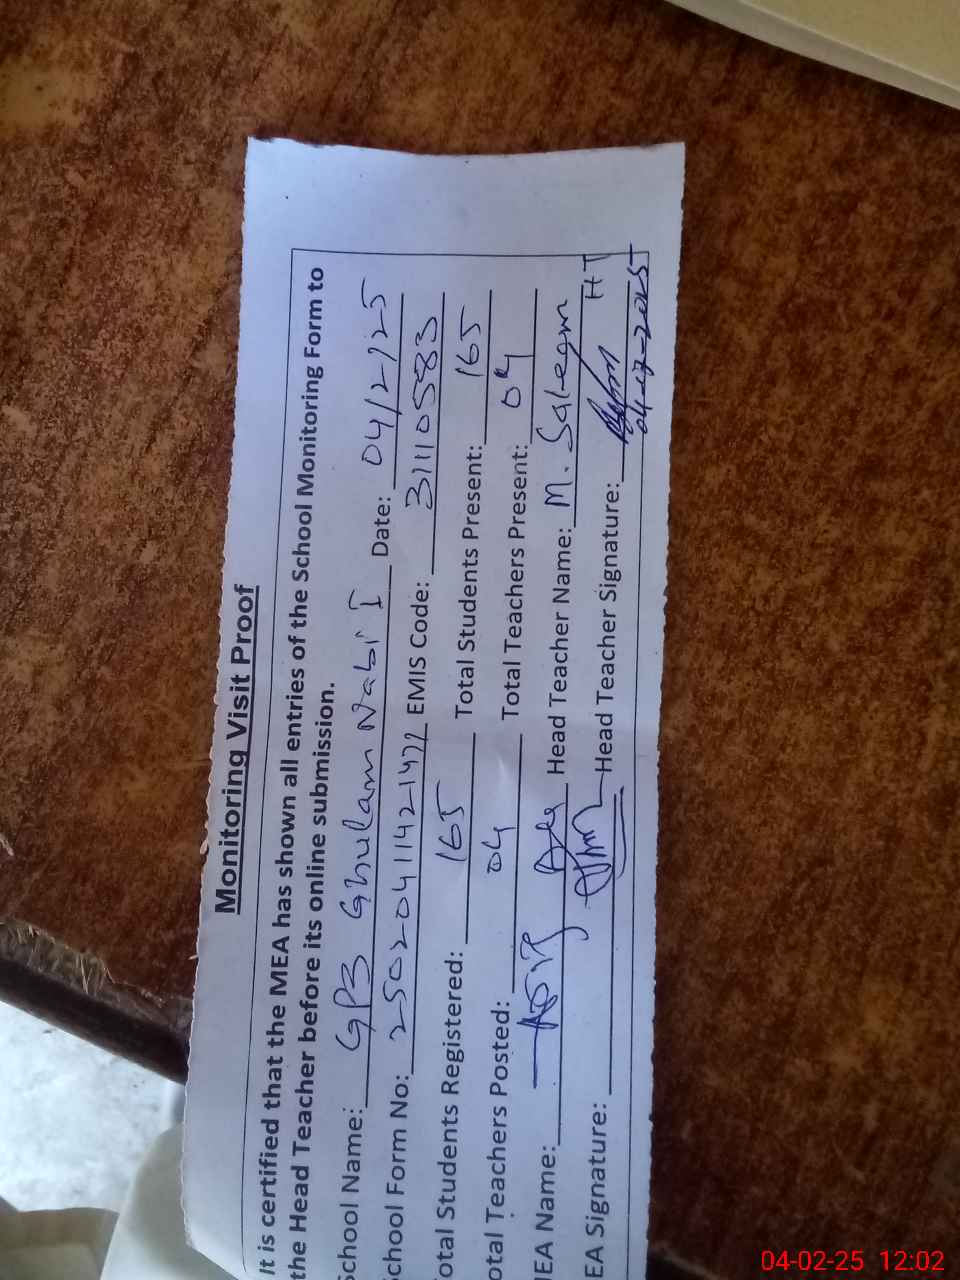 Monitoring Visit Proof
It is certified that the MEA has shown all entries of the School Monitoring Form to
the Head Teacher before its online submission.
School Name: GPS Ghulam Nabi I Date: 04/2/25
School Form No: EMIS Code: 31110583
Total Students Registered: 165 Total Students Present: 165
Total Teachers Posted: 04 Total Teachers Present: 04
MEA Name: Head Teacher Name: M. Saleem
MEA Signature: Head Teacher Signature: HT
04-02-2025
04-02-25 12:02